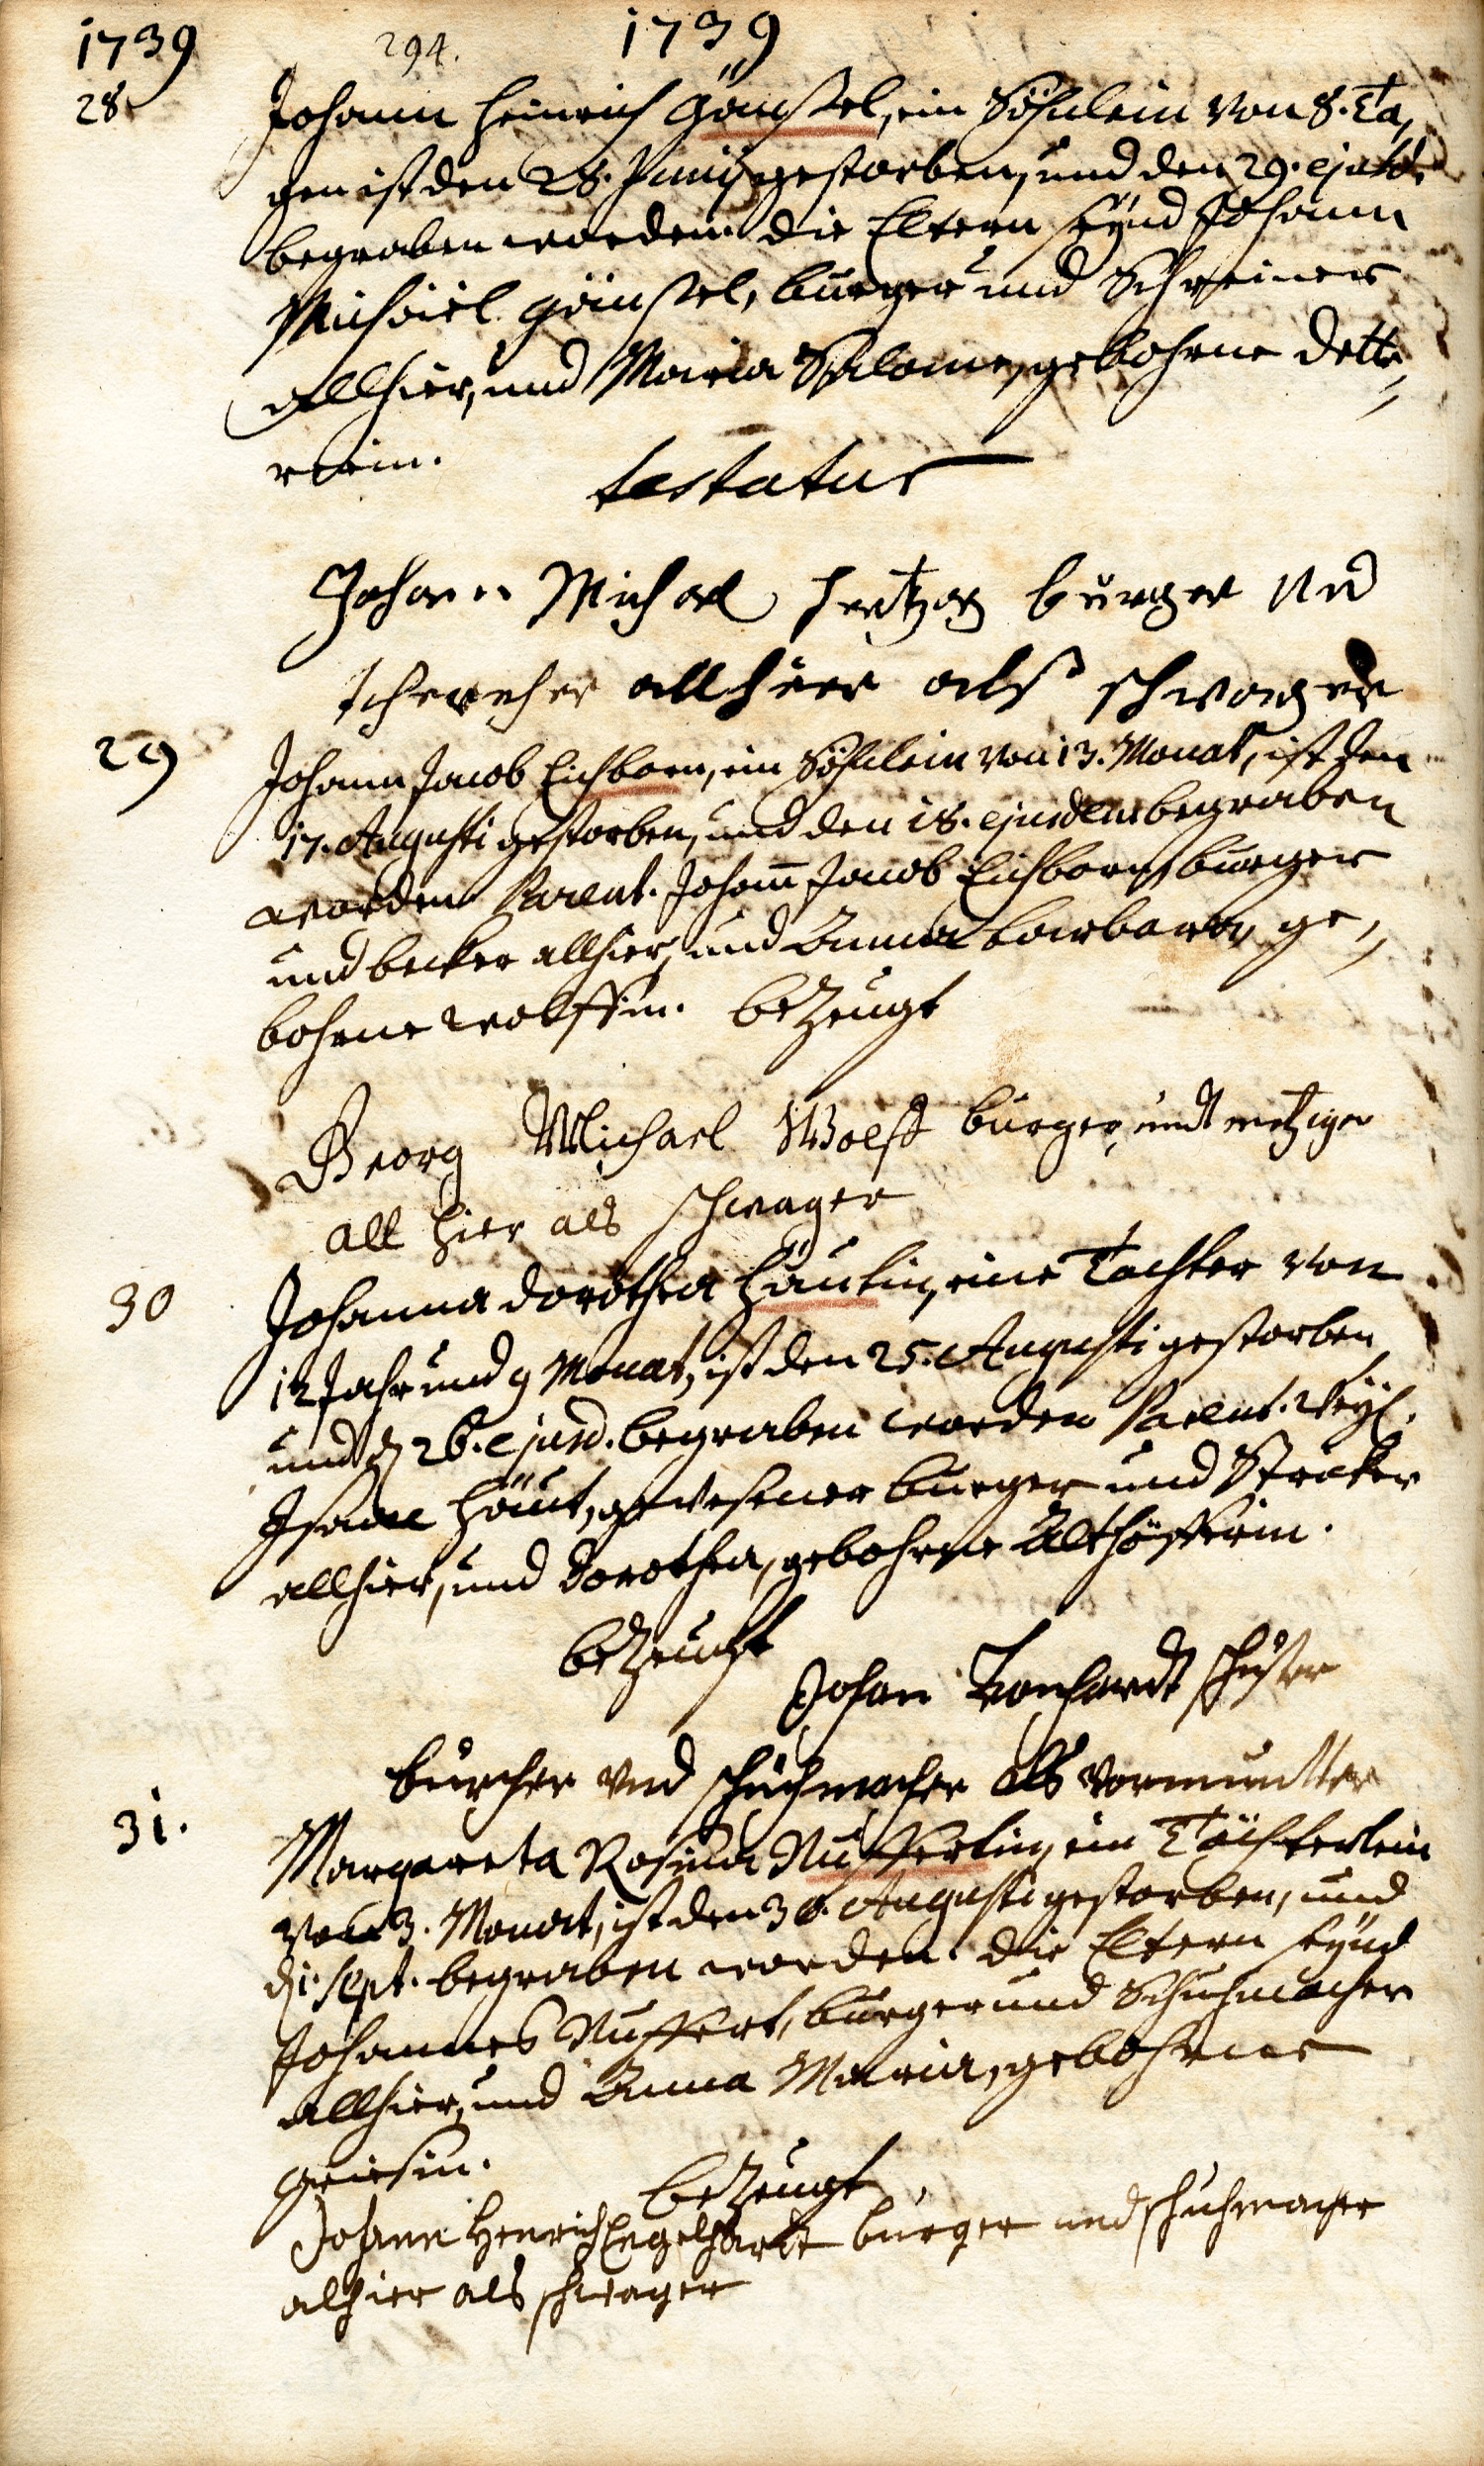 1739 294. 1739
28 Johann Heinrich Gänßel, ein Söhnlein von 8. Ta,
gen ist den 28. Junij gestorben, und den 29. ejusd.
begraben worden. die Eltern seynd Johann
Michael Gänßel, burger und Schreiner
allhier, und Maria Salome, gebohrne Dette,
rlerin.
testatur
Johann Michael Hertzog burger und
schreiner allhier alß schwager
29 Johann Jacob Eichborn, ein Söhnlein von 13. Monat, ist den
17. Augusti gestorben, und den 18. ejusdem begraben
worden Parent. Johann Jacob Eichborn, burger
und becker allhier, und Anna Barbara, ge,
bohrne Wolffin. bezeugt
Georg Michael Wolff burger undt metziger
all hier als schwager
30 Johanna Dorothea Häutin, eine Tochter von
12 Jahr und 9 Monat, ist den 25. Augusti gestorben,
und d. 26. ejusd. begraben worden Parent. Weyl.
Isaac Häut, gewesener burger und Stricker
allhier, und Dorothea, gebohrne Althöfferin.
bezeugt
Johan Leonhardt schuster
burcher und schuhmacher als vormundter
31. Margareta Rosina Nufferlin, ein Töchterlein
von 3. Monat, ist den 30. Augusti gestorben, und
d. 1. sept. begraben worden. die Eltern seynd
Johannes Nuffert, burger und Schuhmacher
allhier, und Anna Maria, gebohrne
Griesin.
bezeugt
Johann Henrich Engelhardt burger und schuhmacher
alhier als schwager